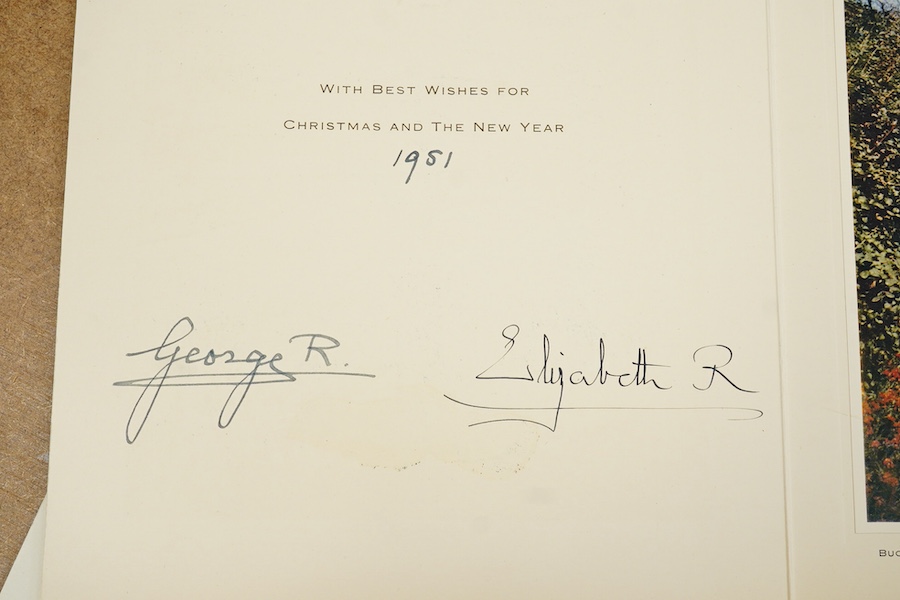 WITH BEST WISHES FOR
CHRISTMAS AND THE NEW YEAR
1951
George R.
Elizabeth R